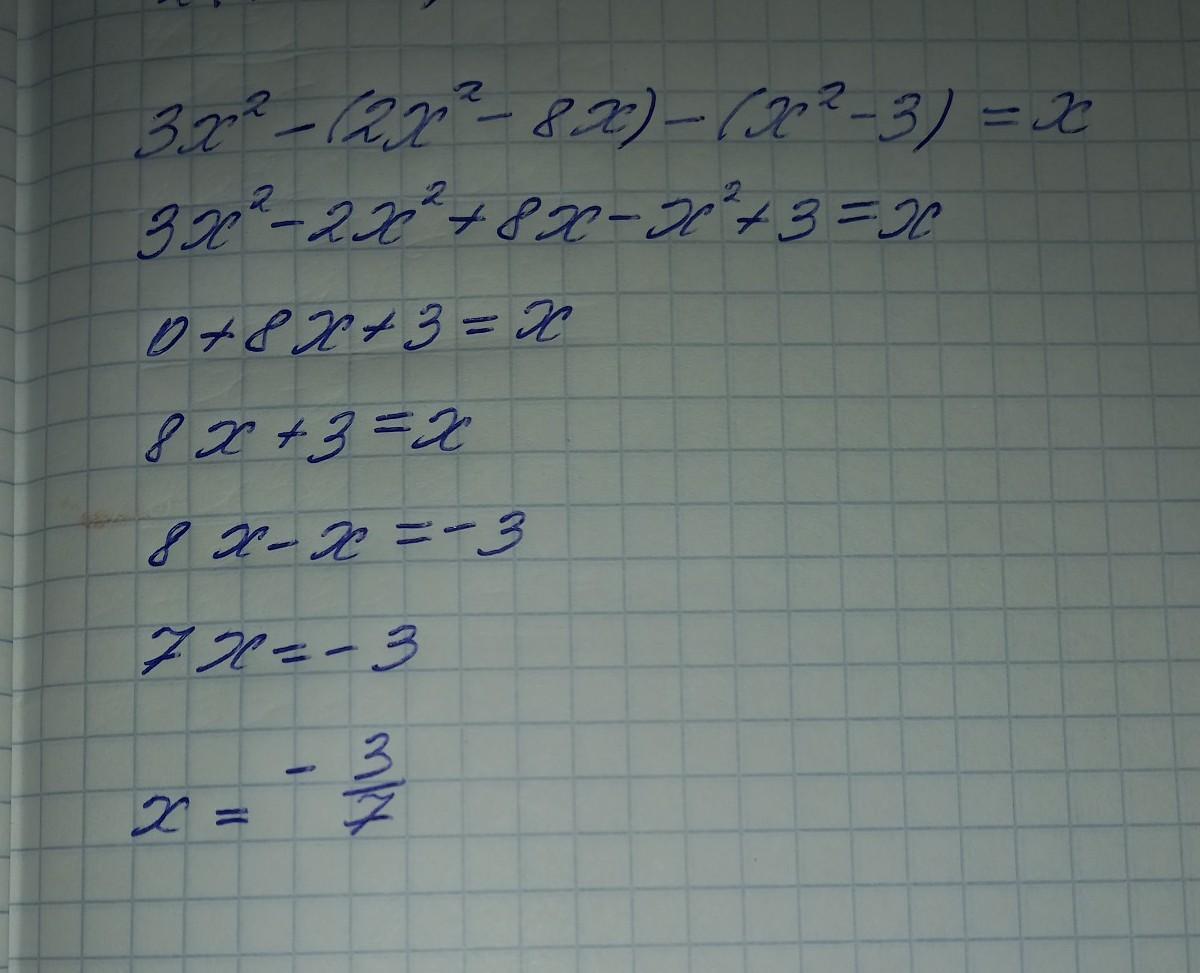 3x² - (2x² - 8x) - (x² - 3) = x
3x² - 2x² + 8x - x² + 3 = x
0 + 8x + 3 = x
8x + 3 = x
8x - x = -3
7x = -3
x = - 3/7